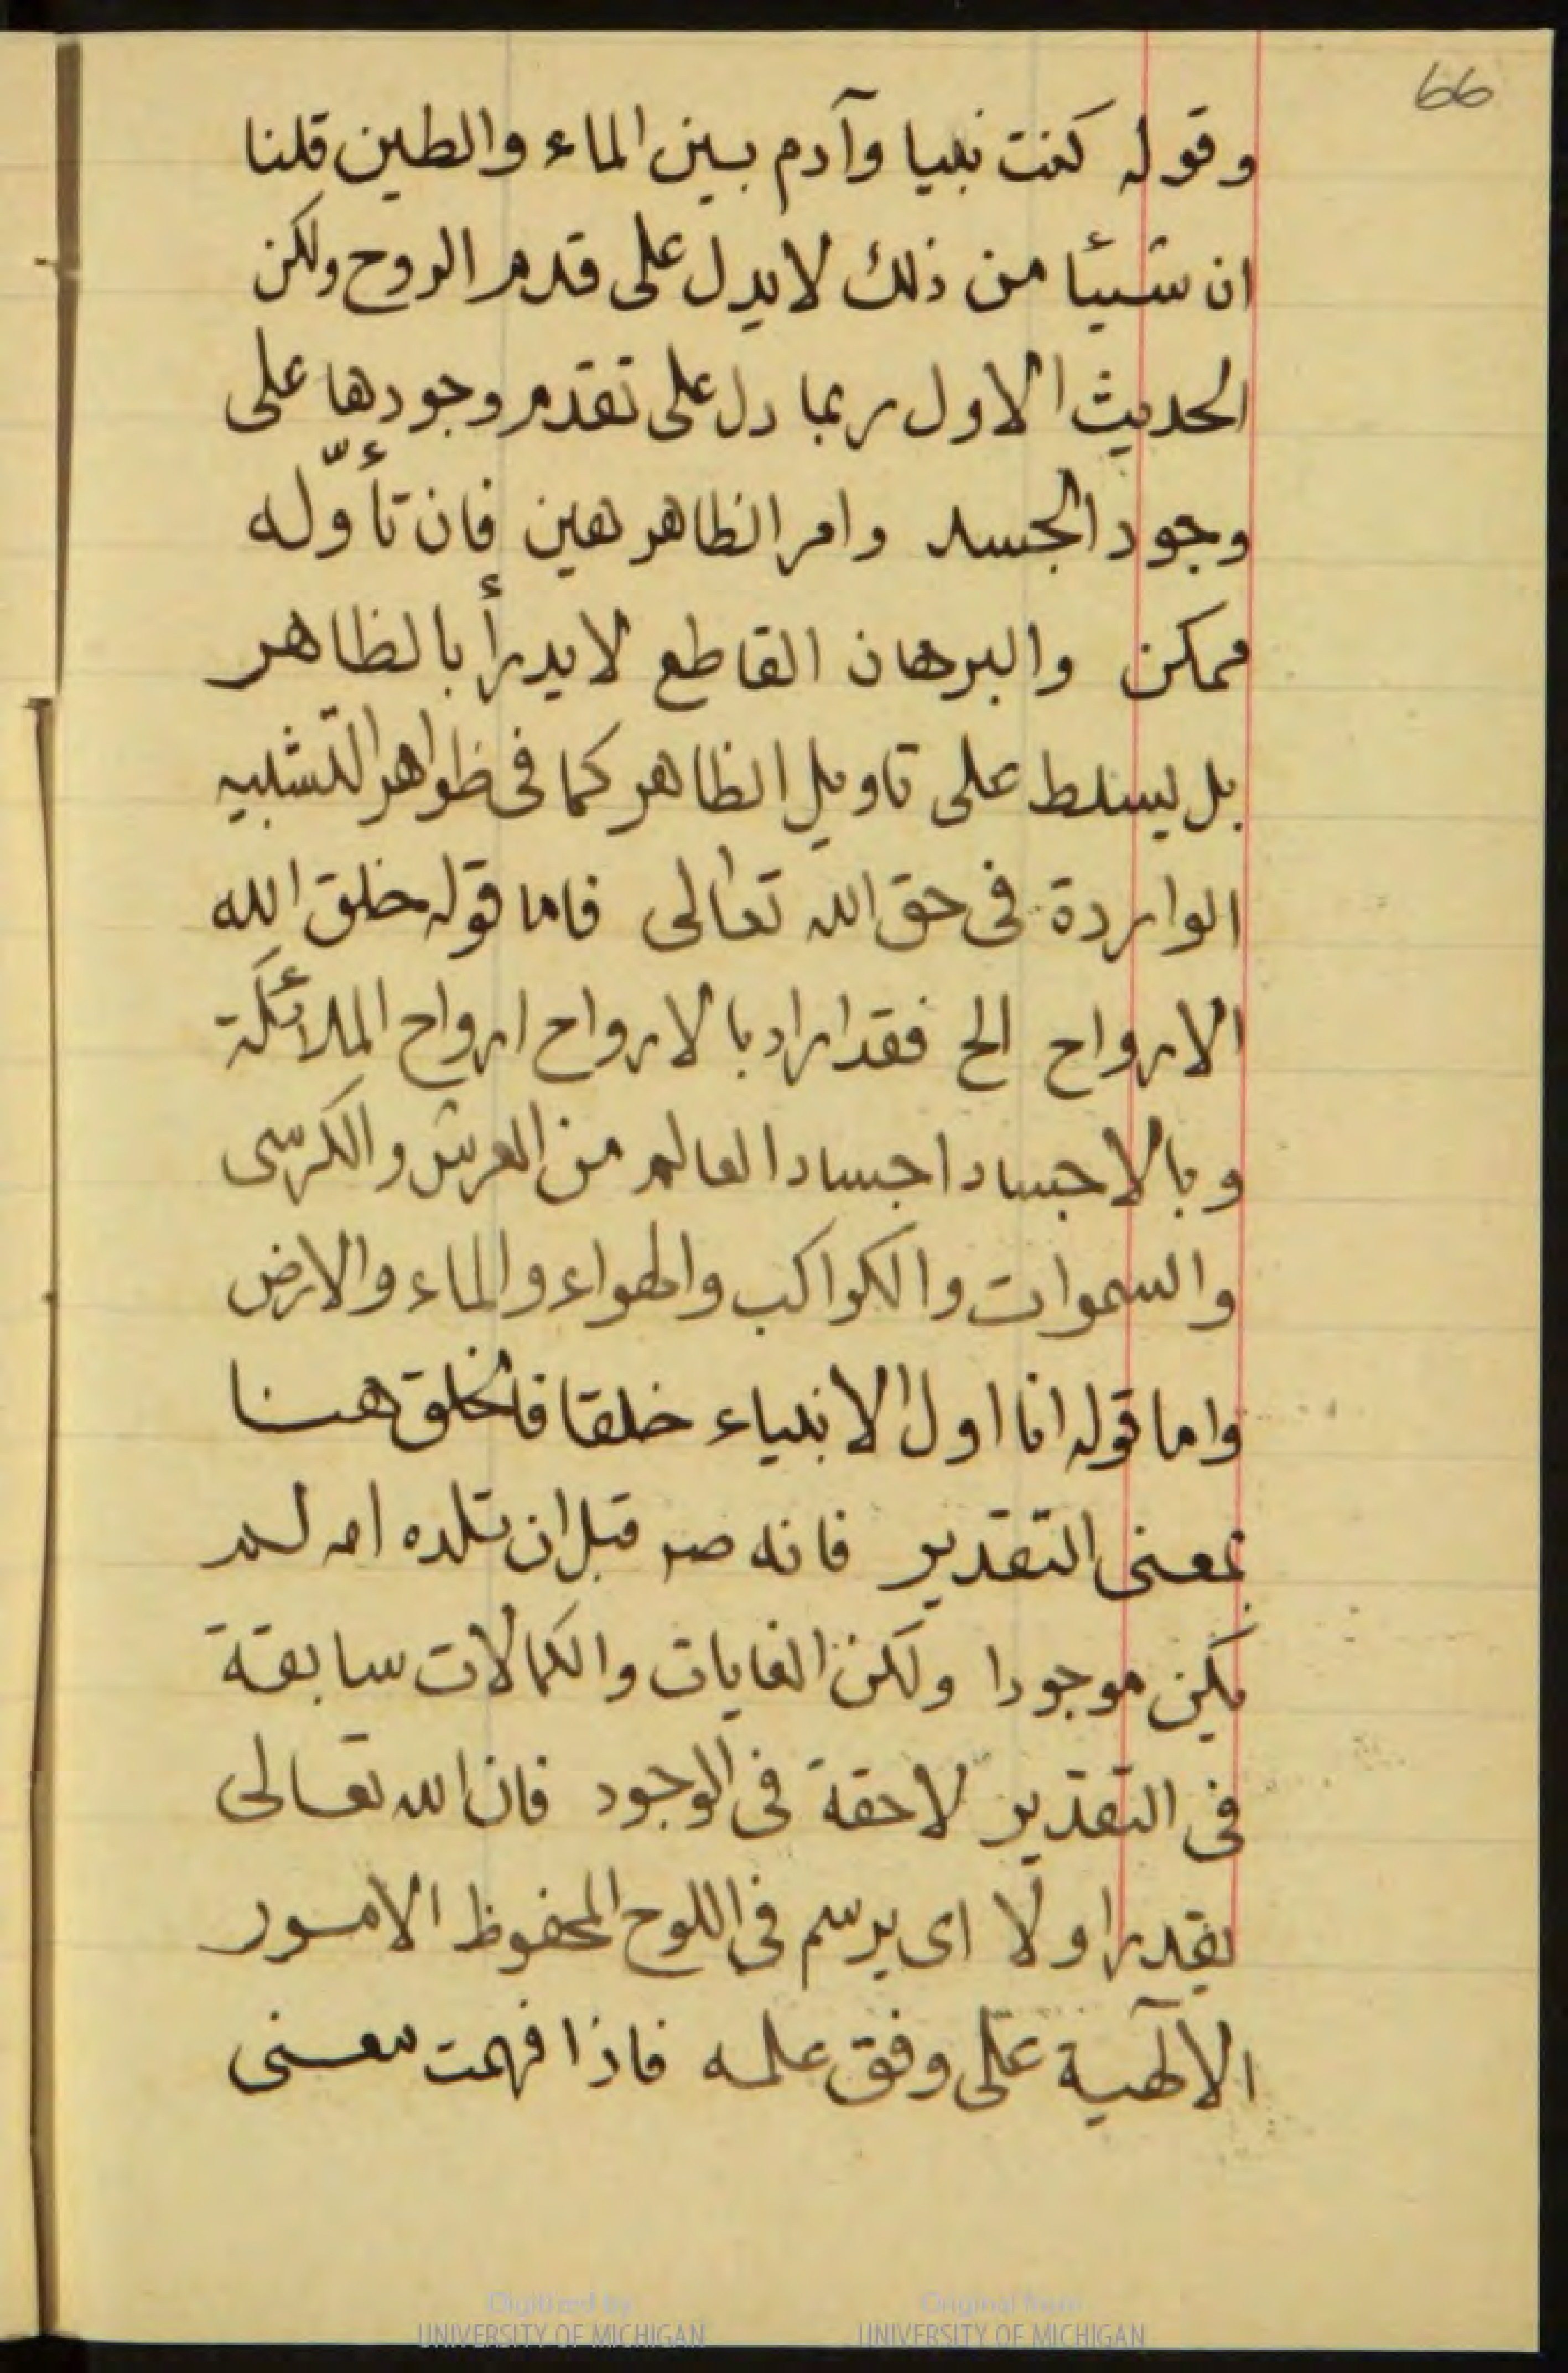 66
وقوله كنت نبيا وآدم بين الماء والطين قلنا
ان شيئا من ذلك لا يدل على قدم الروح ولكن
الحديث الاول ربما دل على تقدم وجودها على
وجود الجسد وامر الظاهر هين فان تأوّله
ممكن والبرهان القاطع لا يدرأ بالظاهر
بل يسلط على تاويل الظاهر كما فى ظواهر التشبيه
الواردة فى حق الله تعالى فاما قوله خلق الله
الارواح الخ فقد اراد بالارواح ارواح الملائكة
وبالاجساد اجساد العالم من العرش والكرسى
والسموات والكواكب والهواء والماء والارض
واما قوله انا اول الانبياء خلقا فالخلق هنا
بمعنى التقدير فانه صم قبل ان تلده امه لم
يكن موجودا ولكن الغايات والكمالات سابقة
فى التقدير لاحقة فى الوجود فان الله تعالى
يقدر اولا اى يرسم فى اللوح المحفوظ الامور
الالٓهية على وفق علمه فاذا فهمت معنى
Digitized by
UNIVERSITY OF MICHIGAN
Original from
UNIVERSITY OF MICHIGAN